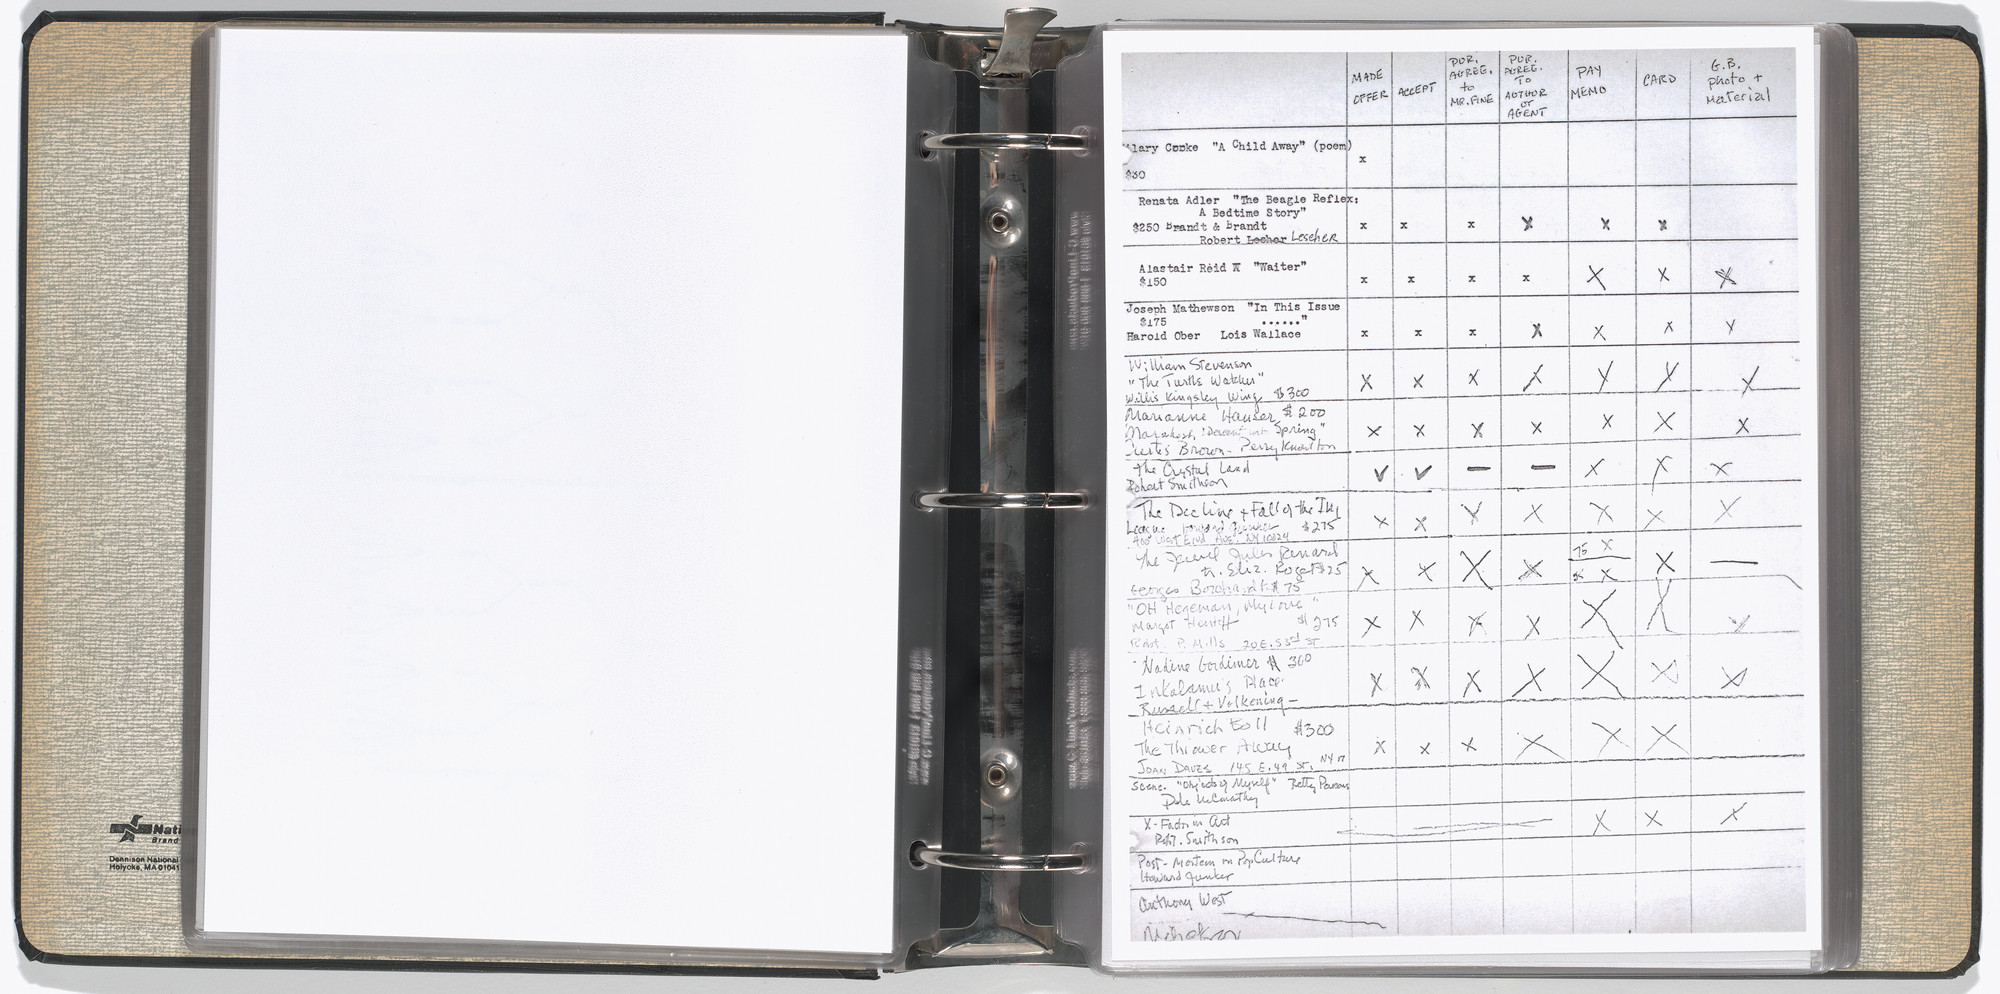 Nati
Brand
Dennison National
Holyoke, MA 01041
MADE OFFER
ACCEPT
PUR. AGREE. to MR. FINE
PUR. AGREE. TO AUTHOR or AGENT
PAY MEMO
CARD
G.B. photo + material
lary Cooke "A Child Away" (poem)
x
$30
Renata Adler "The Beagle Reflex:
A Bedtime Story"
$250 Brandt & Brandt x x x x x x
Robert Lescher
Alastair Reid "Waiter"
$150 x x x x X x X
Joseph Mathewson "In This Issue
$175 ......"
Harold Ober Lois Wallace x x x x x x x
William Stevenson
"The Turtle Watcher" X X X X X X X
Willis Kingsley Wing $300
Marianne Hauser $200
Spring" X X X X X X X
Curtis Brown - Perry Knowlton
The Crystal Land ✓ ✓ — — X X X
Robert Smithson
The Decline + Fall of the
League $275 X X X X X X X
400 West End Ave. NY 10024
The Journal Jules Renard 75 X
tr. Eliz. Roget $25 X X X X X X —
Georges Borchardt $75
"OH Hegeman, My Love"
Margot $275 X X X X X X X
Robt. P. Mills 20 E. 53rd St
Nadine Gordimer $300
Inkalamu's Place X X X X X X X
Russell + Volkening -
Heinrich Boll $300
The Thrower Away X X X X X X
JOAN DAVES 145 E. 49 ST. NY 17
Scene. "Objects of Myself" Betty Parsons
Dale McConathy
X-Factor in Art X X X
Robt. Smithson
Post-Mortem on Pop Culture
Howard Junker
Anthony West